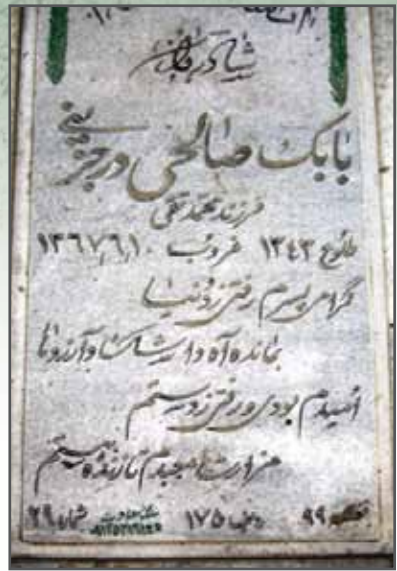 شادروان
بابک صالحی درجزینی
فرزند محمد تقی
طلوع ۱۳۴۳ غروب ۱۳۶۷٫۶٫۱۰
گرامی پسرم رفتی ز دنیا
بمانده آه و اشک و آرزوها
امیدم بودی و رفتی ز دستم
مزارت معبدم تا زنده هستم
قطعه ۹۹ ردیف ۱۷۵ شماره ۲۹